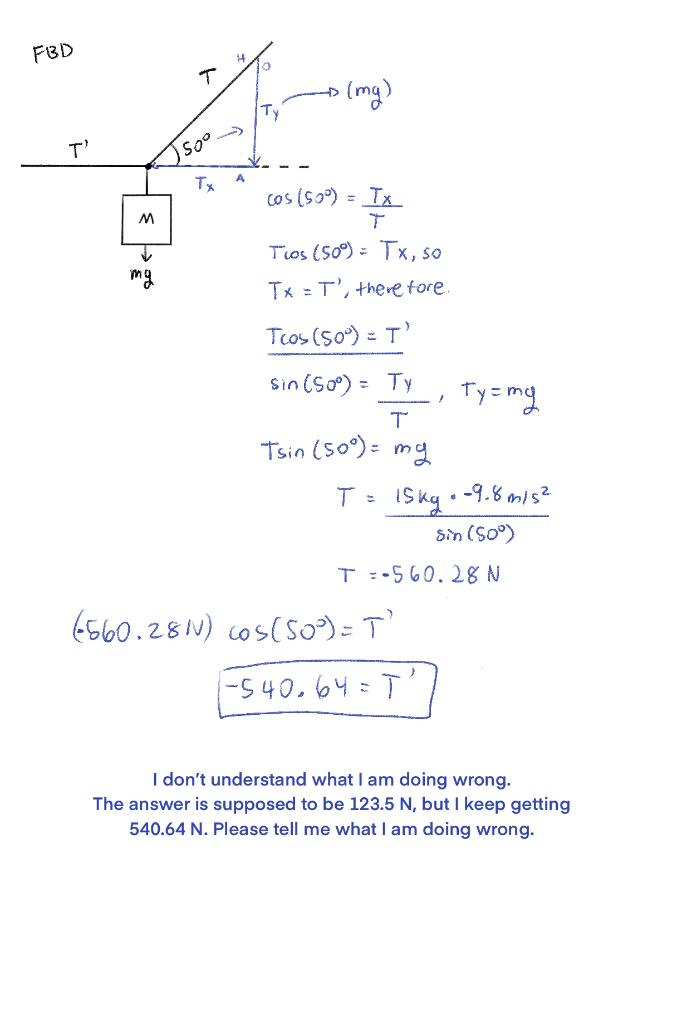 FBD
H
O
T
Ty
(mg)
50°
T'
Tx
A
M
mg
cos (50°) = Tx
T
Tcos (50°) = Tx, so
Tx = T', therefore.
Tcos (50°) = T'
sin (50°) = Ty , Ty = mg
T
Tsin (50°) = mg
T = 15kg • -9.8 m/s²
sin (50°)
T = -560.28 N
(-560.28N) cos(50°) = T'
-540.64 = T'
I don't understand what I am doing wrong.
The answer is supposed to be 123.5 N, but I keep getting
540.64 N. Please tell me what I am doing wrong.